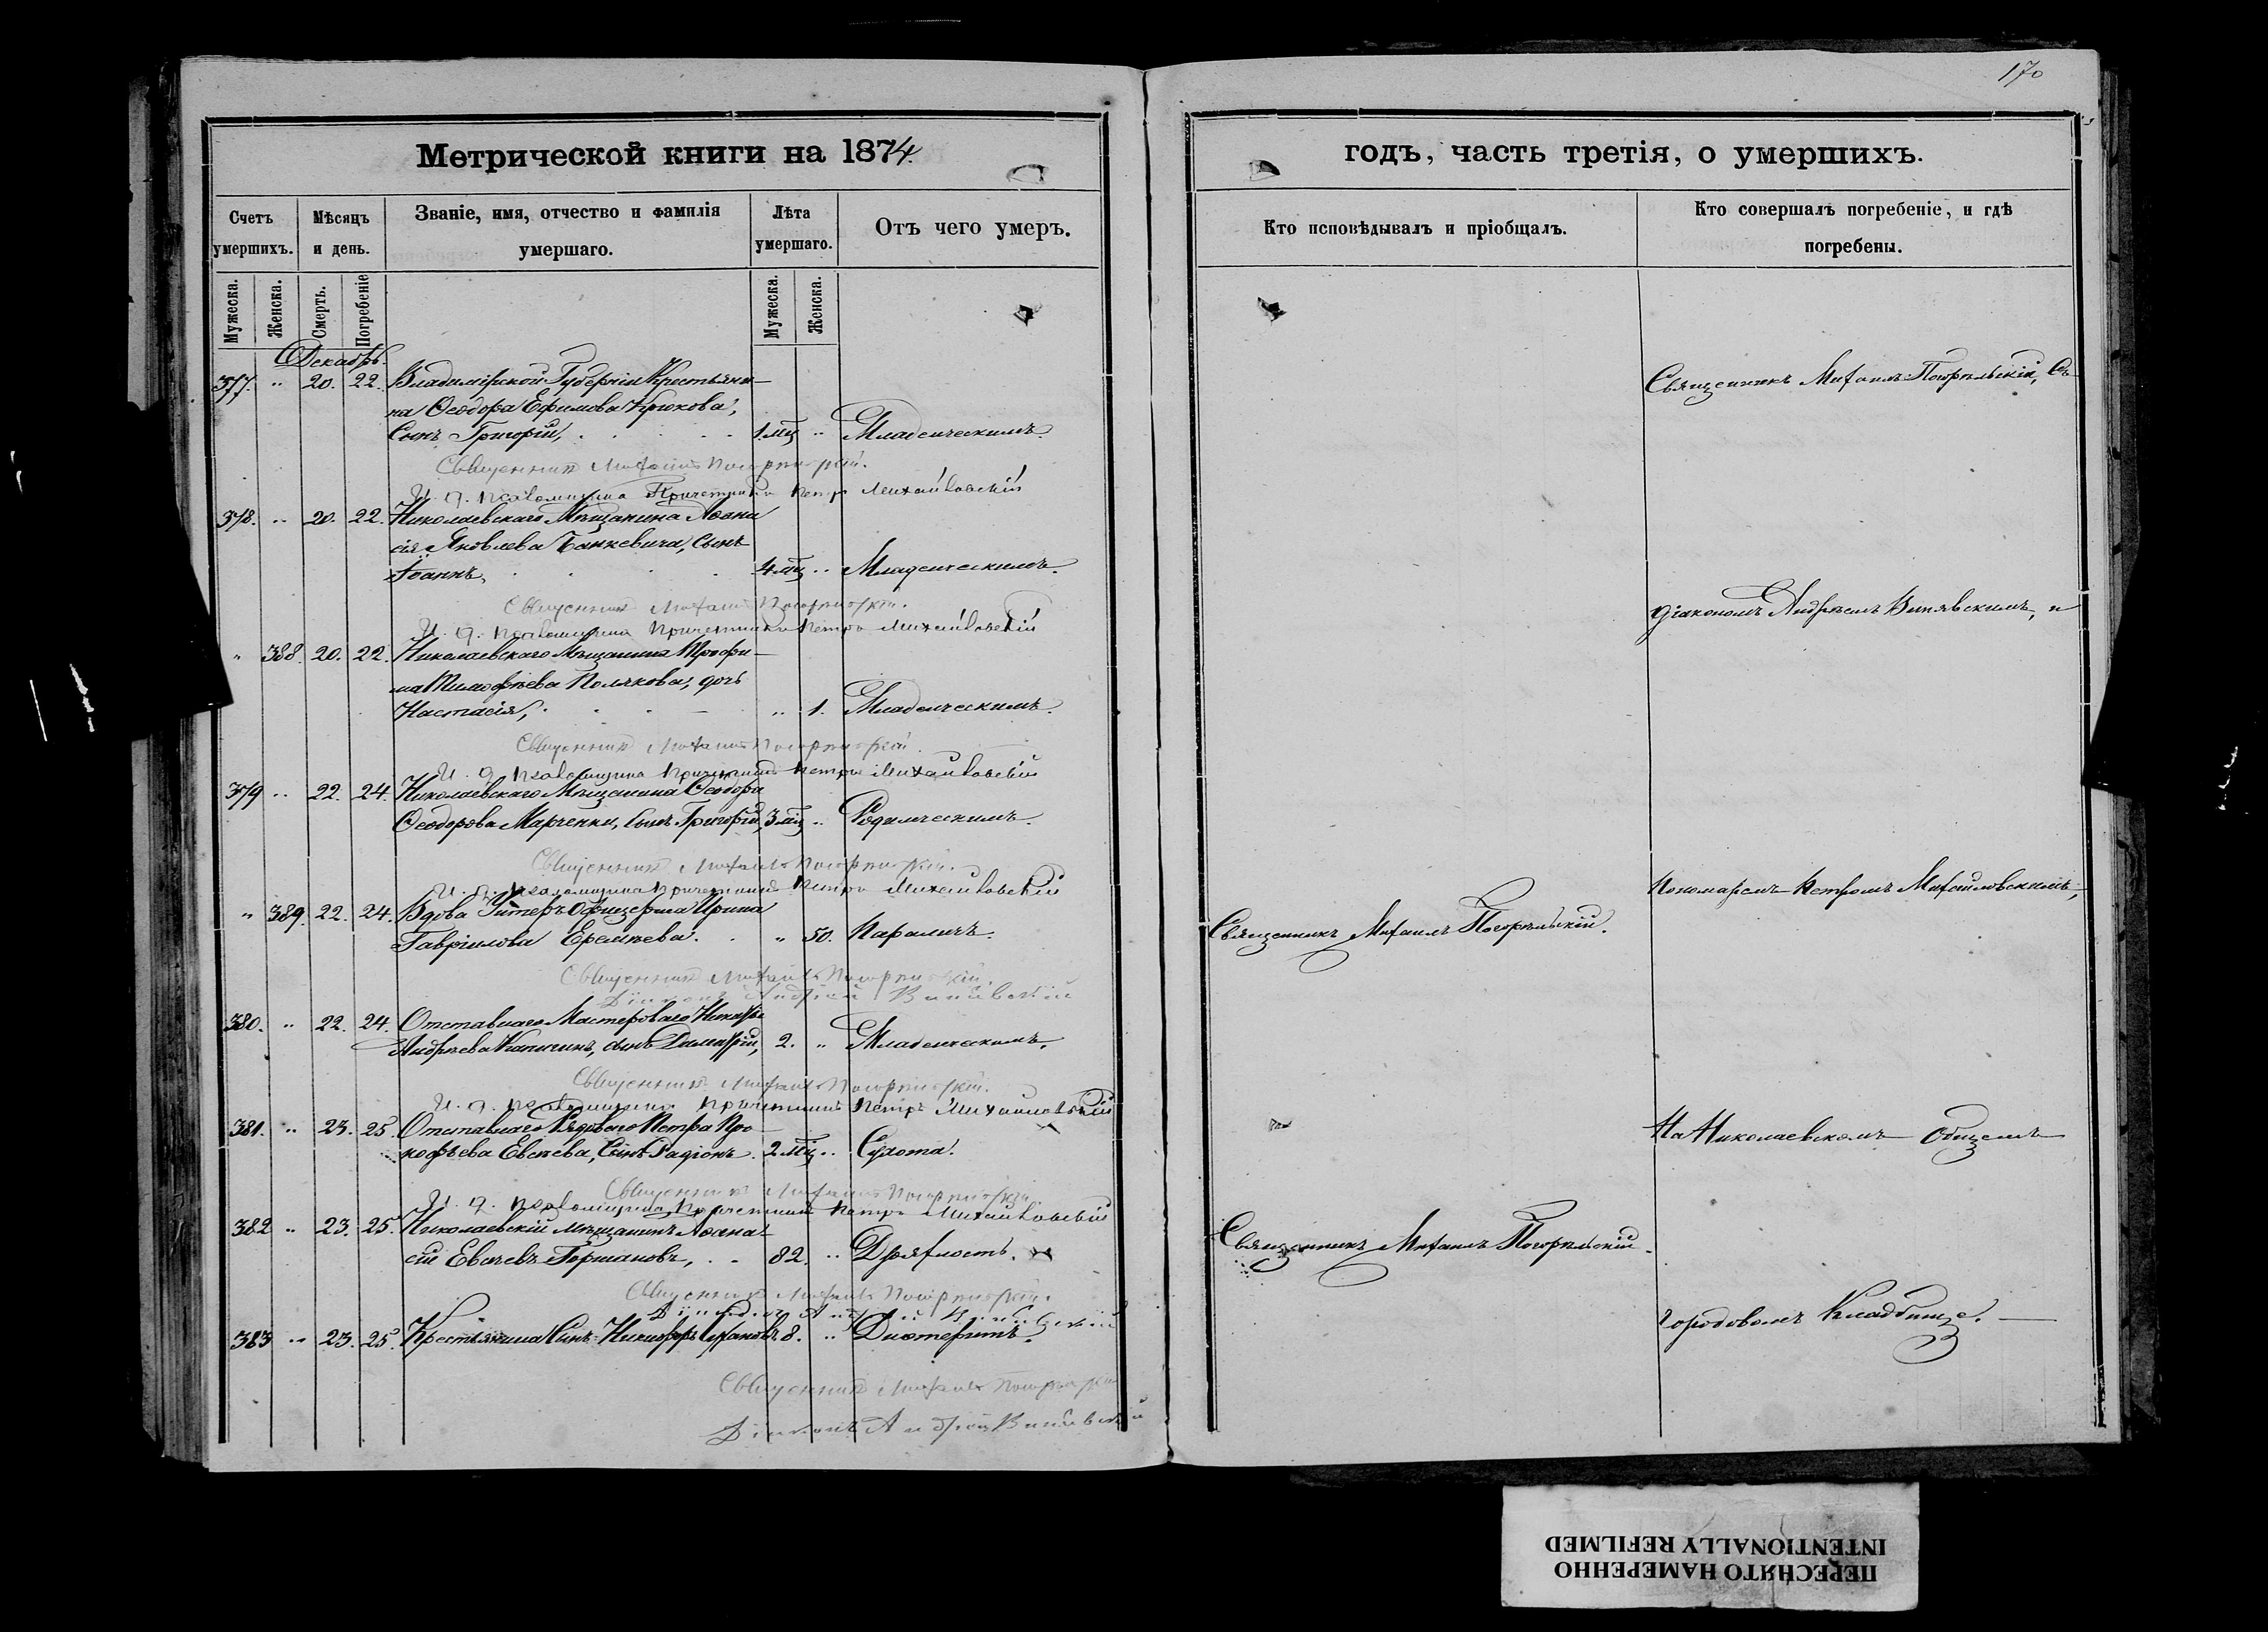 170
Метрической книги на 1874.
годъ, часть третія, о умершихъ.
Счетъ умершихъ.
Мѣсяцъ и день.
Званіе, имя, отчество и фамилія умершаго.
Лѣта умершаго.
Отъ чего умеръ.
Кто исповѣдывалъ и пріобщалъ.
Кто совершалъ погребеніе, и гдѣ погребены.
Мужеска.
Женска.
Смерть.
Погребеніе
Мужеска.
Женска.
Декабрь.
377. " 20. 22. Владимірской Губерніи Крестьяни-
на Ѳеодора Ефимова Крюкова,
Сынъ Григорій, 1 мц " Младенческимъ.
Священник Михаилъ Погорѣльскій.
И. д. псаломщика Причетникъ Петръ Михайловскій
378. " 20. 22. Николаевскаго Мѣщанина Аѳана
сія Яковлева Банкевича, Сынъ
Іоаннъ, 4 мц " Младенческимъ.
Священник Михаилъ Погорѣльскій.
И. д. псаломщика Причетникъ Петръ Михайловскій
" 388. 20. 22. Николаевскаго Мѣщанина Трофи-
ма Тимофѣева Полякова, дочь
Настасія, " 1. Младенческимъ.
Священник Михаилъ Погорѣльскій.
И. д. псаломщика Причетникъ Петръ Михайловскій
379 " 22. 24. Николаевскаго Мѣщанина Ѳеодора
Ѳеодорова Марченки, сынъ Григорій, 3 мц " Родимческимъ.
Священник Михаилъ Погорѣльскій.
И. д. псаломщика Причетникъ Петръ Михайловскій
" 389. 22. 24. Вдова Унтеръ Офицерша Ирина
Гавріилова Еремѣева. " 50. Параличъ.
Священник Михаилъ Погорѣльскій.
Діаконъ Андрей Винявскій
380. " 22. 24. Отставнаго Мастероваго
Андрѣева сынъ Димитрій, 2. " Младенческимъ.
Священник Михаилъ Погорѣльскій.
И. д. псаломщика Причетникъ Петръ Михайловскій
381. " 23. 25. Отставнаго Рядоваго Петра Про-
кофьева Евсѣева, Сынъ Радіонъ. 2 мц " Сухота.
Священник Михаилъ Погорѣльскій.
И. д. псаломщика Причетникъ Петръ Михайловскій
382 " 23. 25. Николаевскій Мѣщанинъ Аѳана-
сій 82. " Дряхлость.
Священник Михаилъ Погорѣльскій.
Діаконъ Андрей Винявскій
383 " 23. 25. Крестьянина Сынъ Никифоръ 8. " Дифтеритъ.
Священник Михаилъ Погорѣльскій
Діаконъ Андрей Винявскій
Священникъ Михаилъ Погорѣльскій.
Священникъ Михаилъ Погорѣльскій.
Священникъ Михаилъ Погорѣльскій, Съ
Діакономъ Андреемъ Винявскимъ, и
Пономаремъ Петромъ Михайловскимъ,
На Николаевскомъ Общемъ
городовомъ Кладбище.
ПЕРЕСНЯТО НАМЕРЕННО
INTENTIONALLY REFILMED